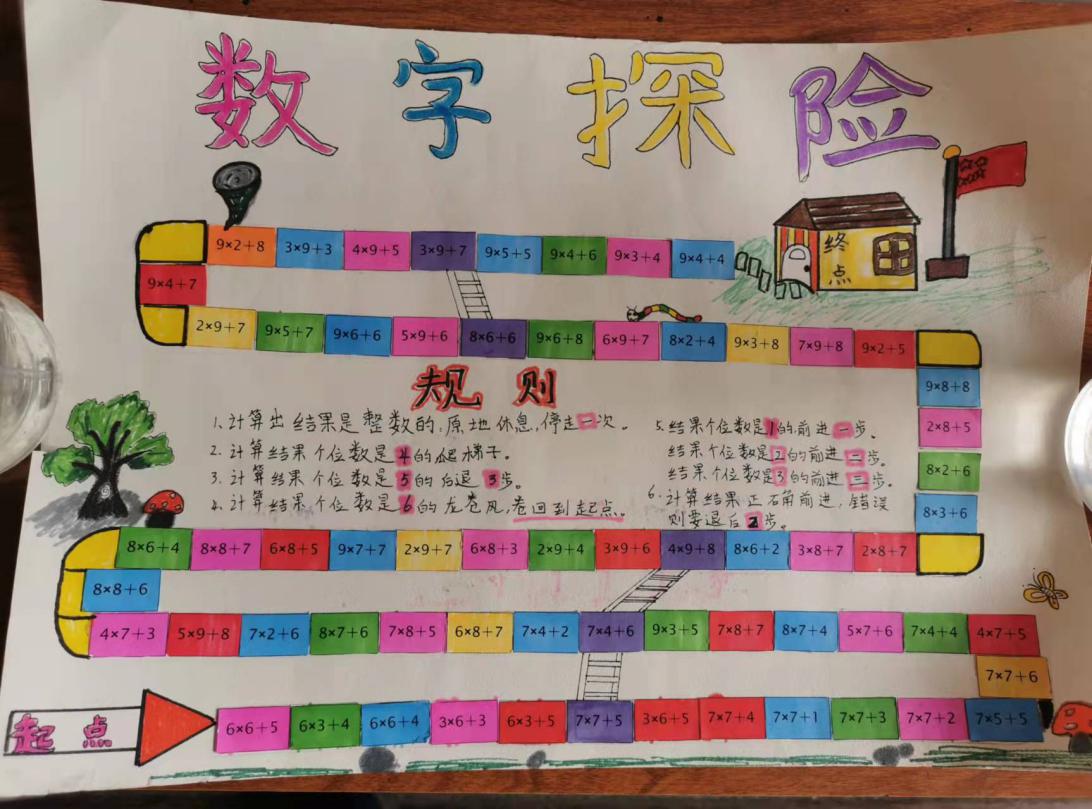 数字探险
终点
9×2+8 3×9+3 4×9+5 3×9+7 9×5+5 9×4+6 9×3+4 9×4+4
9×4+7
2×9+7 9×5+7 9×6+6 5×9+6 8×6+6 9×6+8 6×9+7 8×2+4 9×3+8 7×9+8 9×2+5
规则
1.计算出结果是整数的,原地休息,停走一次。
2.计算结果个位数是4的爬梯子。
3.计算结果个位数是5的后退3步。
4.计算结果个位数是6的龙卷风,卷回到起点。
5.结果个位数是1的前进一步。
结果个位数是2的前进二步。
结果个位数是3的前进三步。
6.计算结果正石角前进,错误
则要退后2步。
9×8+8
2×8+5
8×2+6
8×3+6
8×6+4 8×8+7 6×8+5 9×7+7 2×9+7 6×8+3 2×9+4 3×9+6 4×9+8 8×6+2 3×8+7 2×8+7
8×8+6
4×7+3 5×9+8 7×2+6 8×7+6 7×8+5 6×8+7 7×4+2 7×4+6 9×3+5 7×8+7 8×7+4 5×7+6 7×4+4 4×7+5
7×7+6
起点
6×6+5 6×3+4 6×6+4 3×6+3 6×3+5 7×7+5 3×6+5 7×7+4 7×7+1 7×7+3 7×7+2 7×5+5